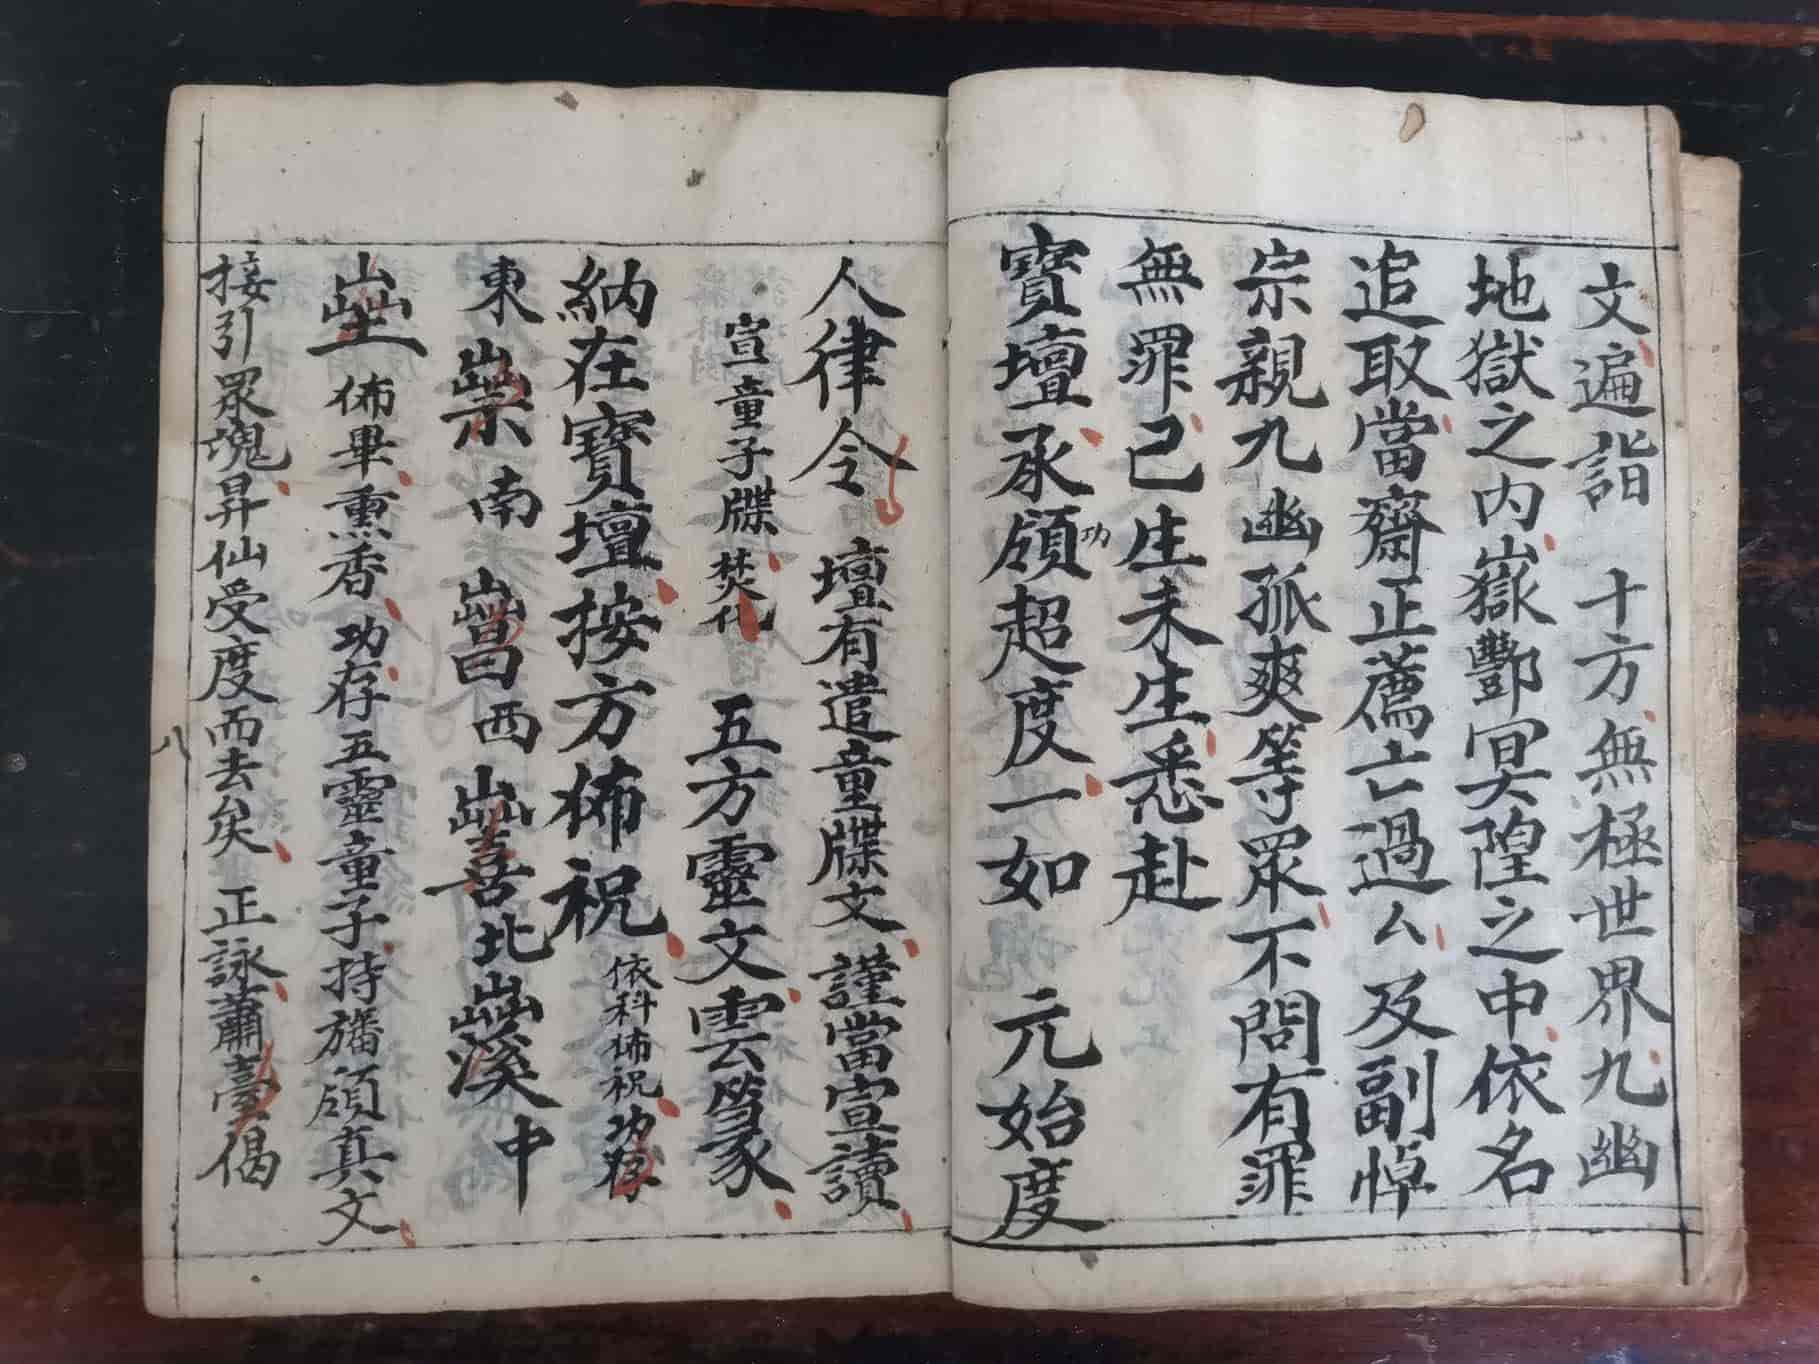 文遍詣 十方無極世界九幽
地獄之内嶽酆冥隍之中依名
追取當齋正薦亡過厶及副悼
宗親九幽孤爽等眾不問有罪
無罪已生未生悉赴
寶壇承領功超度一如 元始度
人律令 壇有遣童牒文謹當宣讀
宣童子牒焚化 五方靈文雲篆
納在寶壇按方佈祝 依科佈祝功存
東 南 西 北 中
佈畢熏香功存五靈童子持旛領真文
接引眾魂昇仙受度而去矣 正詠蕭臺偈
八